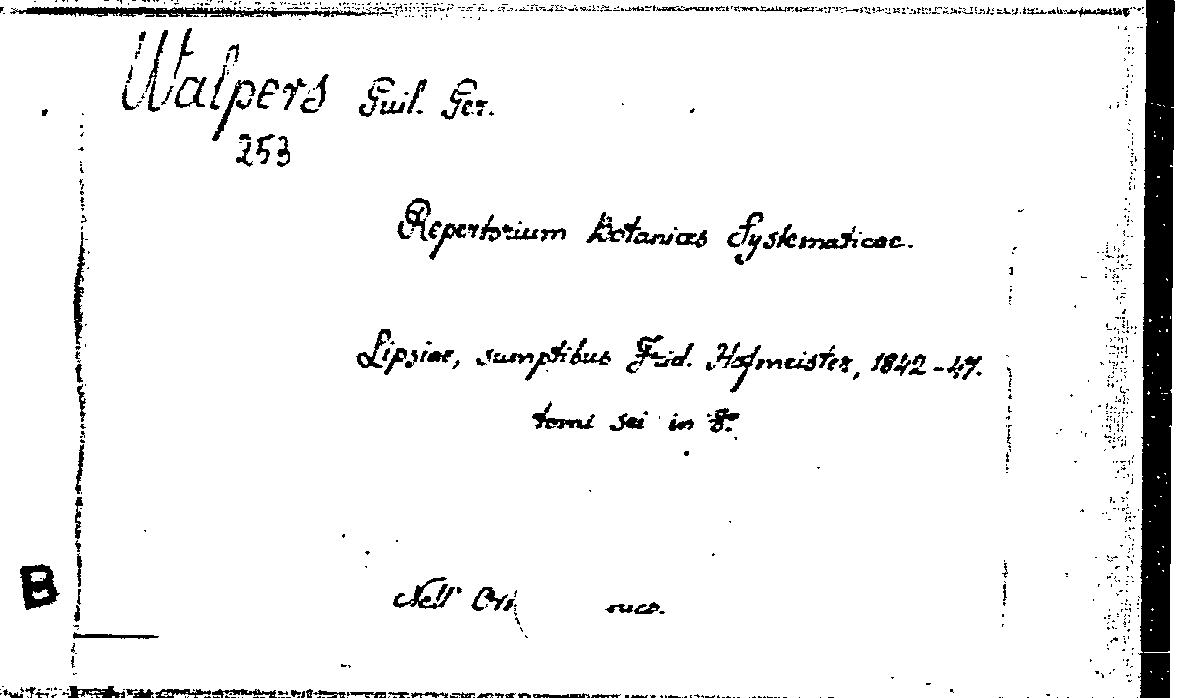 Walpers Guil. Ger.
253
Repertorium Botanices Systematicae.
Lipsiae, sumptibus Frid. Hofmeister, 1842-47.
tomi sei in 8º.
B
Nell'